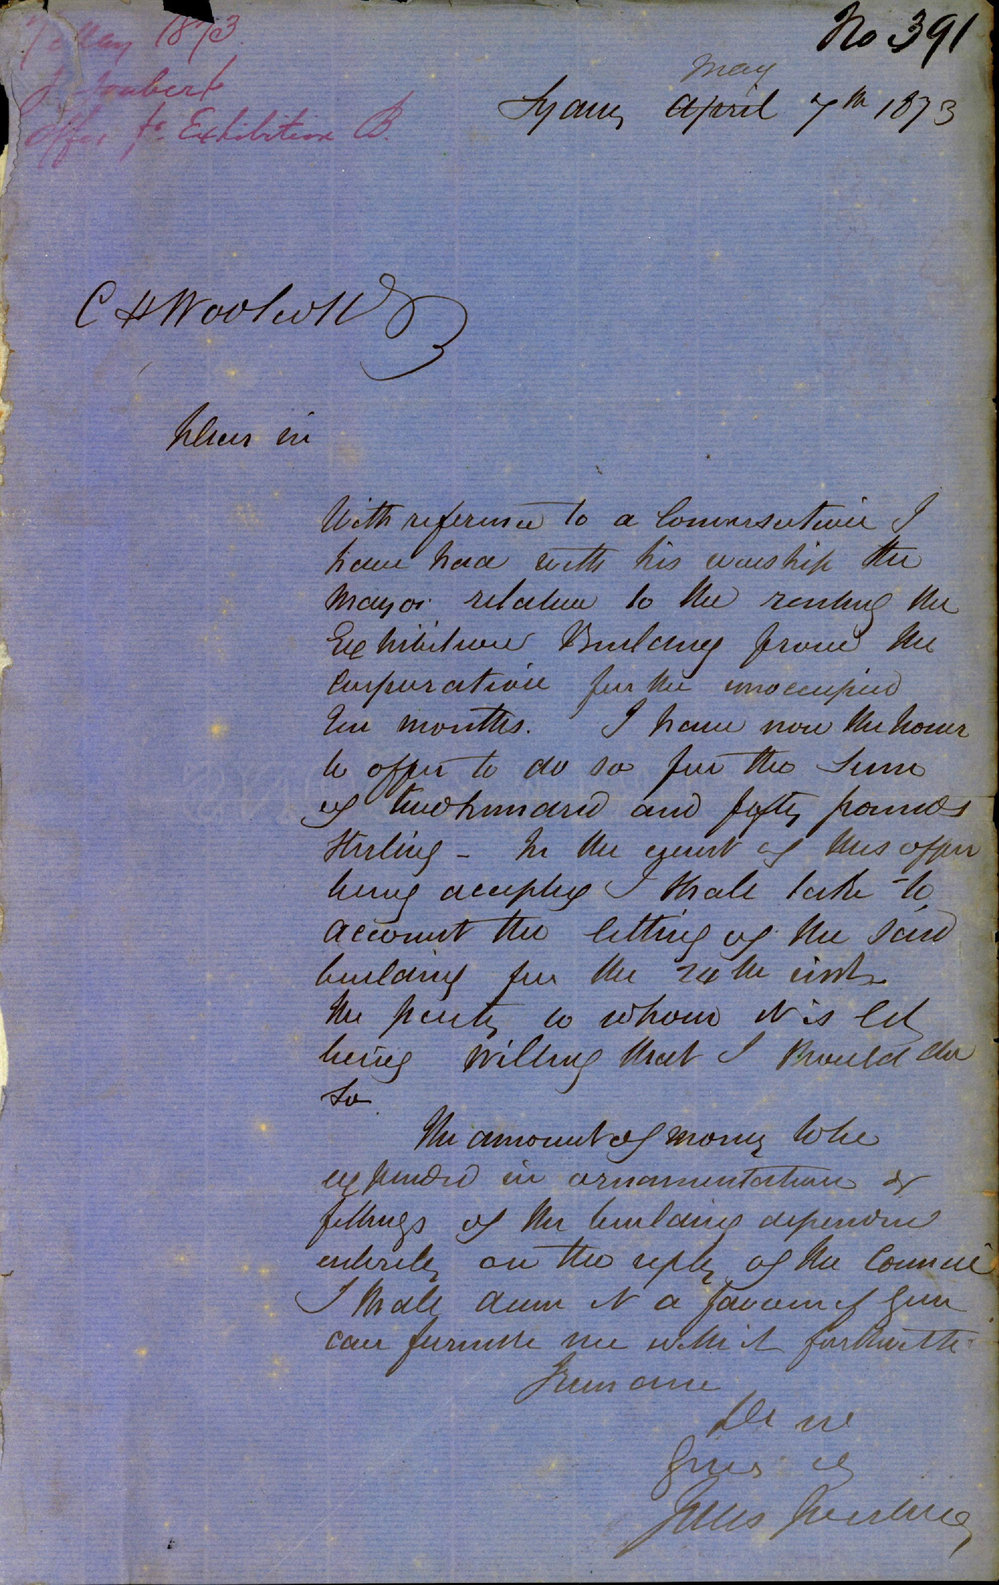 7 May 1873
J. Joubert
Offer for Exhibition B.
No 391
May
Sydney April 7th 1873
C H Woolcott
Dear Sir
With reference to a Conversation I
have had with his worship the
Mayor relative to the renting the
Exhibition Building from the
Corporation for the unoccupied
ten months. I have now the honor
to offer to do so for the Sum
of two hundred and fifty pounds
Sterling - In the event of this offer
being accepted I shall take to
account the letting of the said
building for the 24th inst
the party to whom it is let
being willing that I should do
so
The amount of money to be
expended in ornamentation &
fittings of the building depending
entirely on the reply of the Council
I shall deem it a favour if you
can furnish me with it forthwith
I remain
Dr Sir
Yours
Jules Joubert